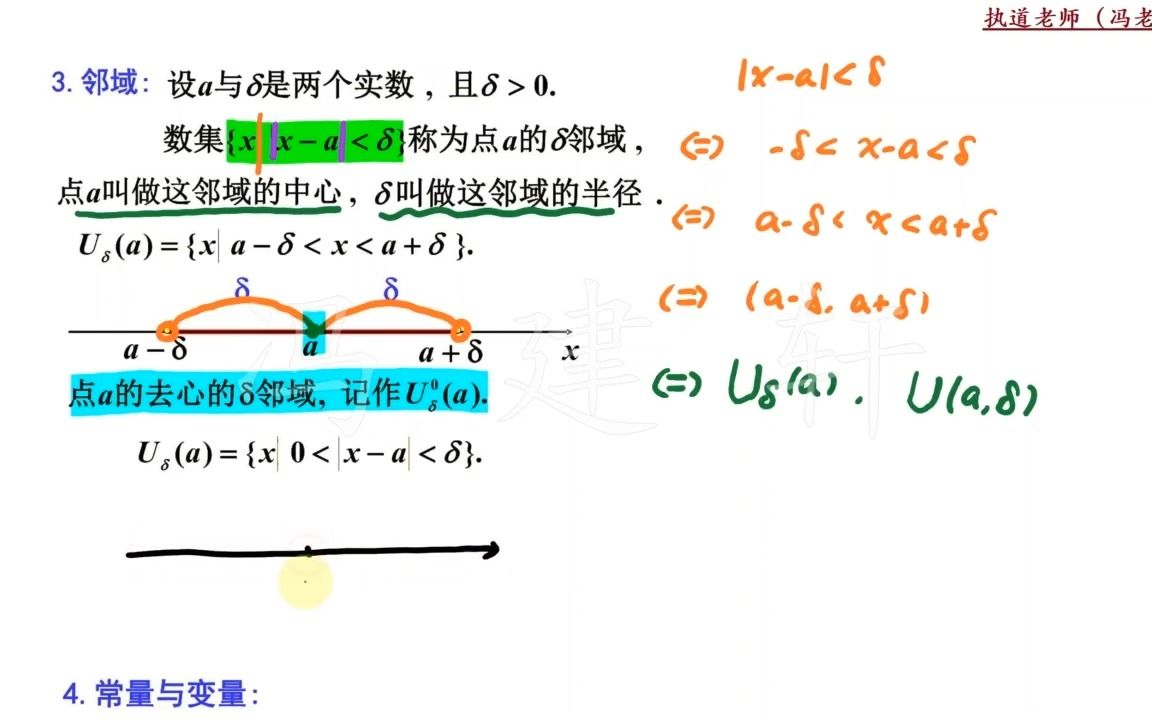 执道老师（冯老
3.邻域: 设a与δ是两个实数, 且δ > 0.
数集{x| |x − a| < δ}称为点a的δ邻域,
点a叫做这邻域的中心, δ叫做这邻域的半径.
U_δ(a) = {x| a − δ < x < a + δ }.
δ δ
a − δ a a + δ x
点a的去心的δ邻域, 记作U_δ^0(a).
U_δ(a) = {x| 0 < |x − a| < δ}.
4.常量与变量:
|x-a|< δ
(=) -δ < x-a < δ
(=) a-δ < x < a+δ
(=) (a-δ, a+δ)
(=) U_δ(a). U(a,δ)
冯建轩